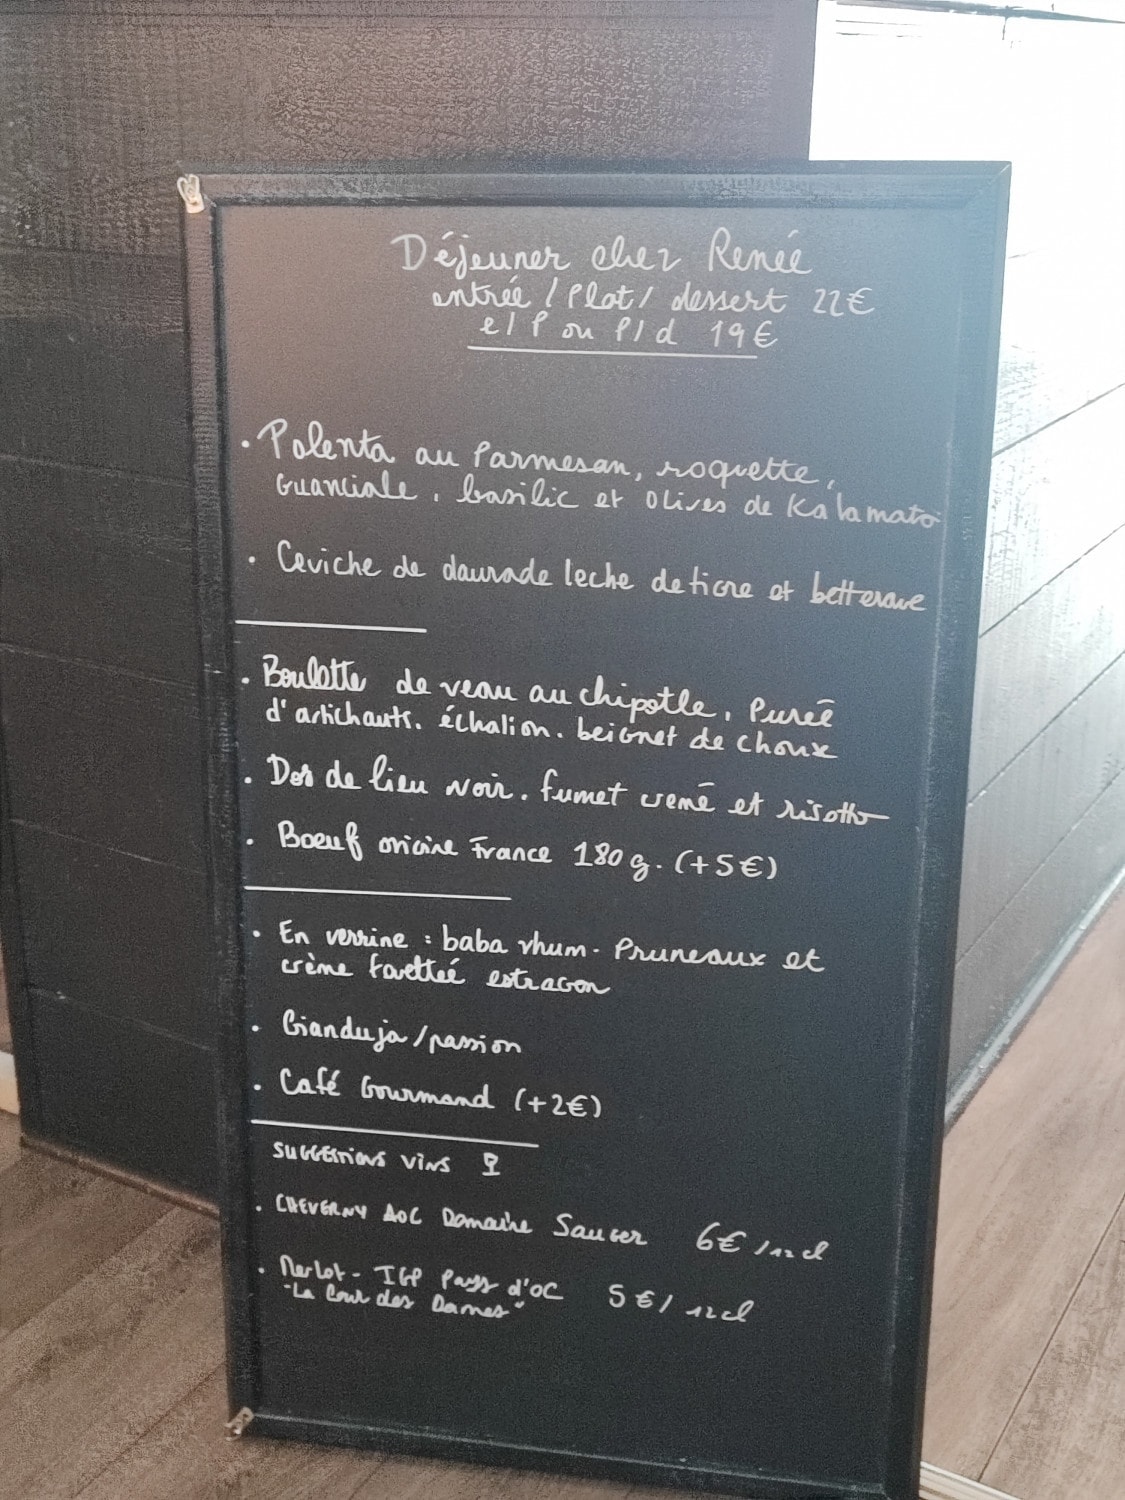 Déjeuner chez Renée
entrée / Plat / dessert 22€
e/P ou P/d 19€
• Polenta au Parmesan, roquette,
Guanciale, basilic et olives de Kalamata
• Ceviche de daurade leche de tigre et betterave
• Boulette de veau au chipotle, Purée
d'artichauts. échalion. beignet de choux
• Dos de lieu noir. fumet crémé et risotto
• Boeuf origine France 180g. (+5€)
• En verrine : baba rhum. Pruneaux et
crème fouettée estragon
• Gianduja/passion
• Café Gourmand (+2€)
SUGGESTIONS VINS
• CHEVERNY AOC Domaine Sauger 6€/12cl
• Merlot - IGP Pays d'OC 5€/12cl
"La Cour des Dames"